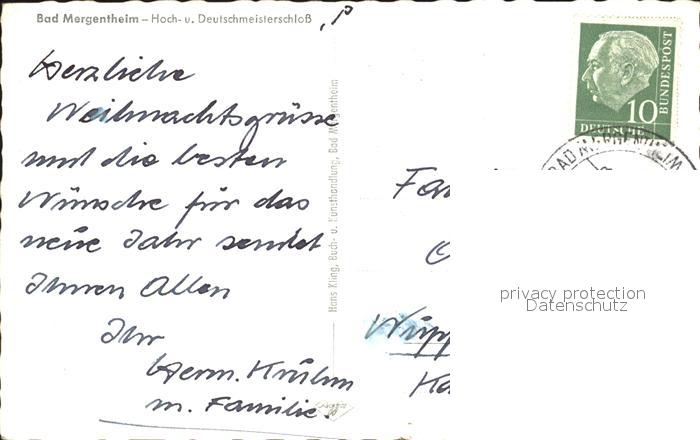 Bad Mergentheim – Hoch- u. Deutschmeisterschloß
Herzliche
Weihnachtsgrüsse
und die besten
Wünsche für das
neue Jahr sendet
Ihnen Allen
Ihr
Herm. Krühm
m. Familie.
Hans Kling, Buch- u. Kunsthandlung, Bad Mergentheim
10
DEUTSCHE
BUNDESPOST
BAD MERGENTHEIM
Fam
Wupp
privacy protection
Datenschutz